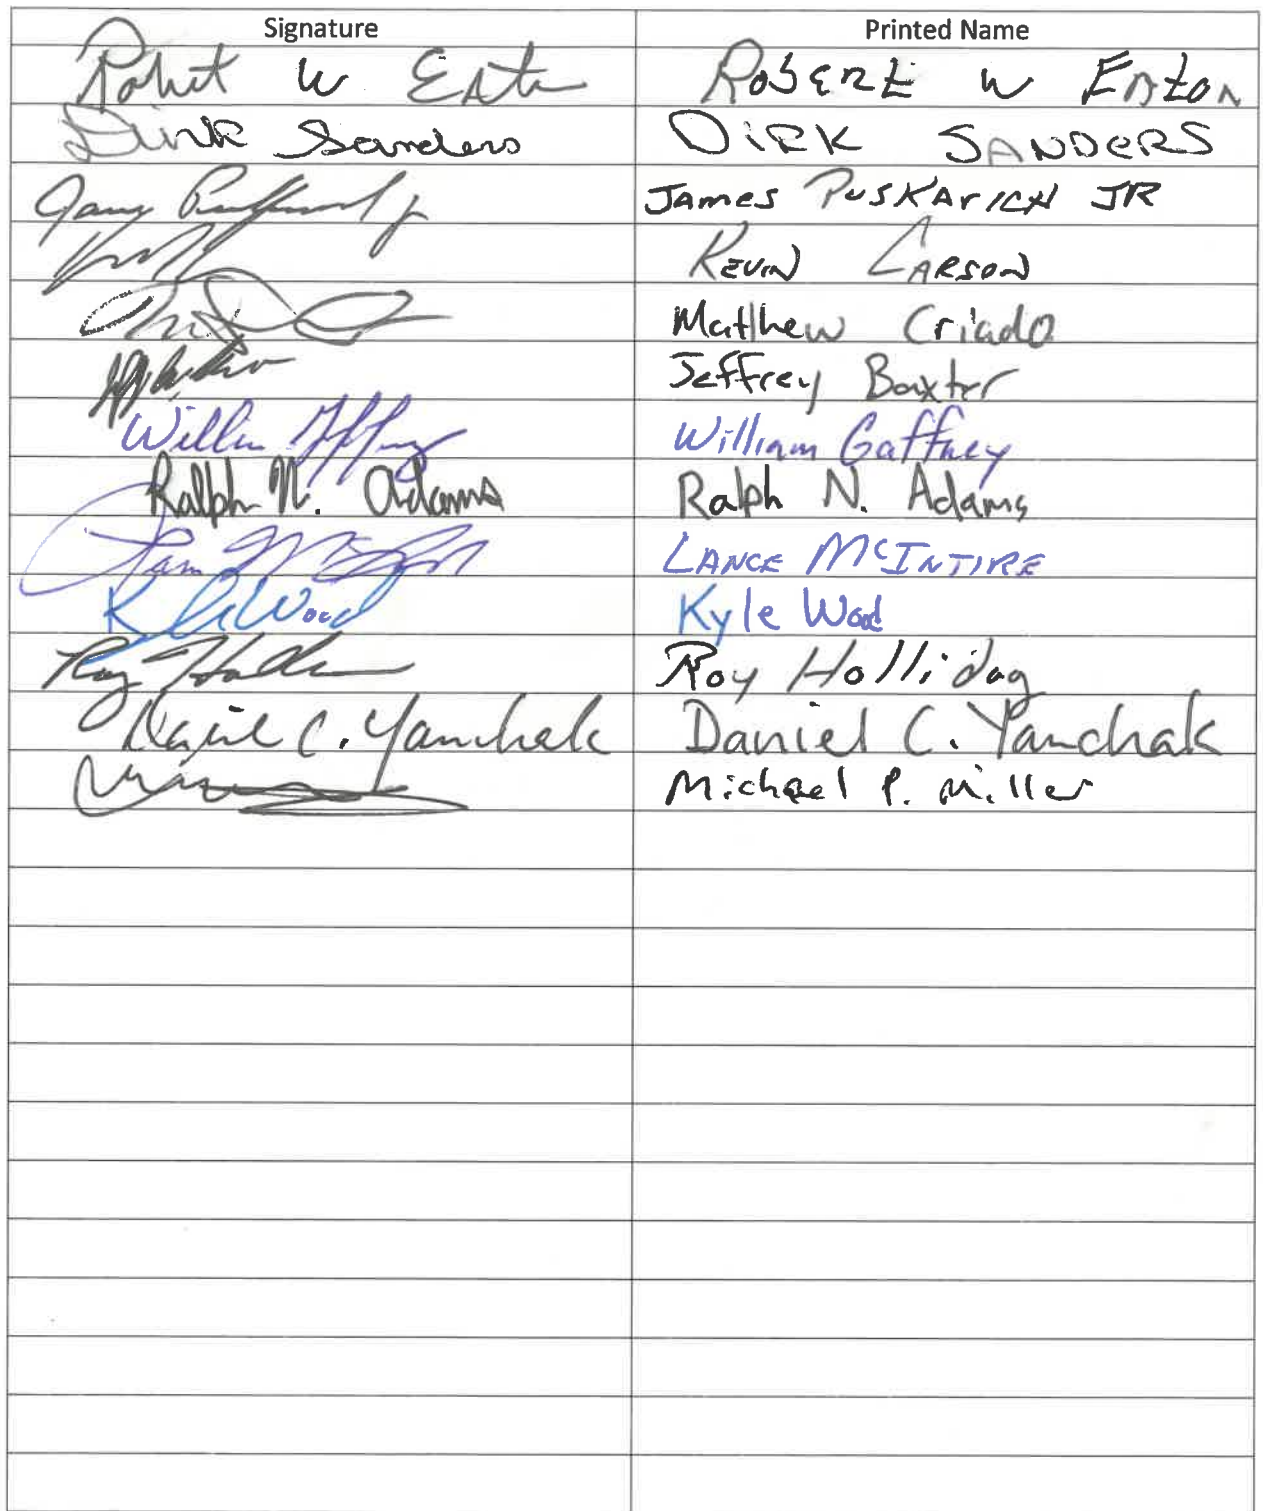 Signature Printed Name
Robert W Eaton Robert W Eaton
Dirk Sanders DIRK SANDERS
James PUSKArICH JR
KEVIN LARSON
Matthew Criado
Jeffrey Baxter
William Gaffney William Gaffney
Ralph N. Adams Ralph N. Adams
LANCE McINTIRE
Kyle Wood Kyle Wood
Roy Holliday
Daniel C. Yanchak Daniel C. Yanchak
Michael P. Miller